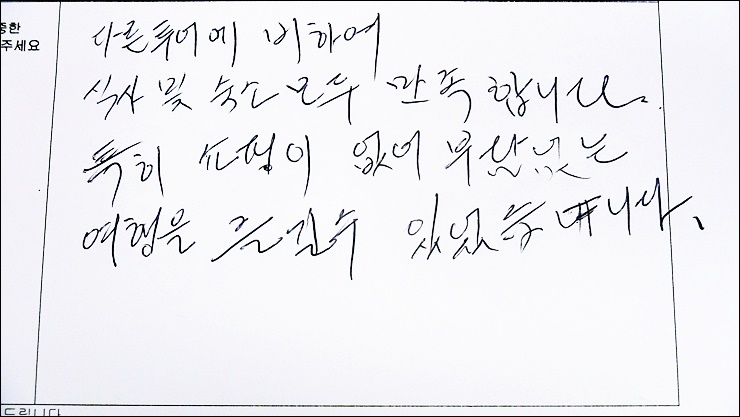 중한
주세요
다른투어에 비하여
식사 및 숙소 모두 만족 합니다.
특히 쇼핑이 없어 부담없는
여행을 즐길수 있었습니다.
드립니다